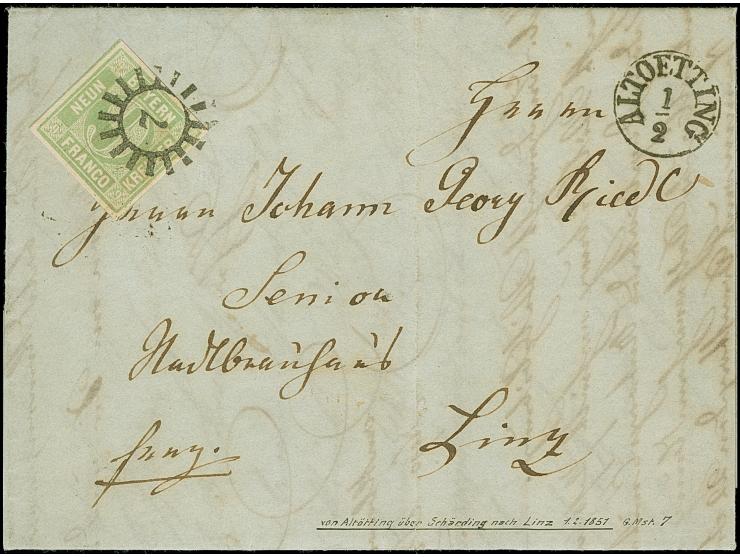 NEUN
YERN
FRANCO
KR
7
ALTOETTING
1
2
Herrn
Herrn Johann Georg Riedl
Senior
Stadtbrauhaus
Linz
franz.
von Altötting über Schärding nach Linz 1.2.1851 G.Mst. 7